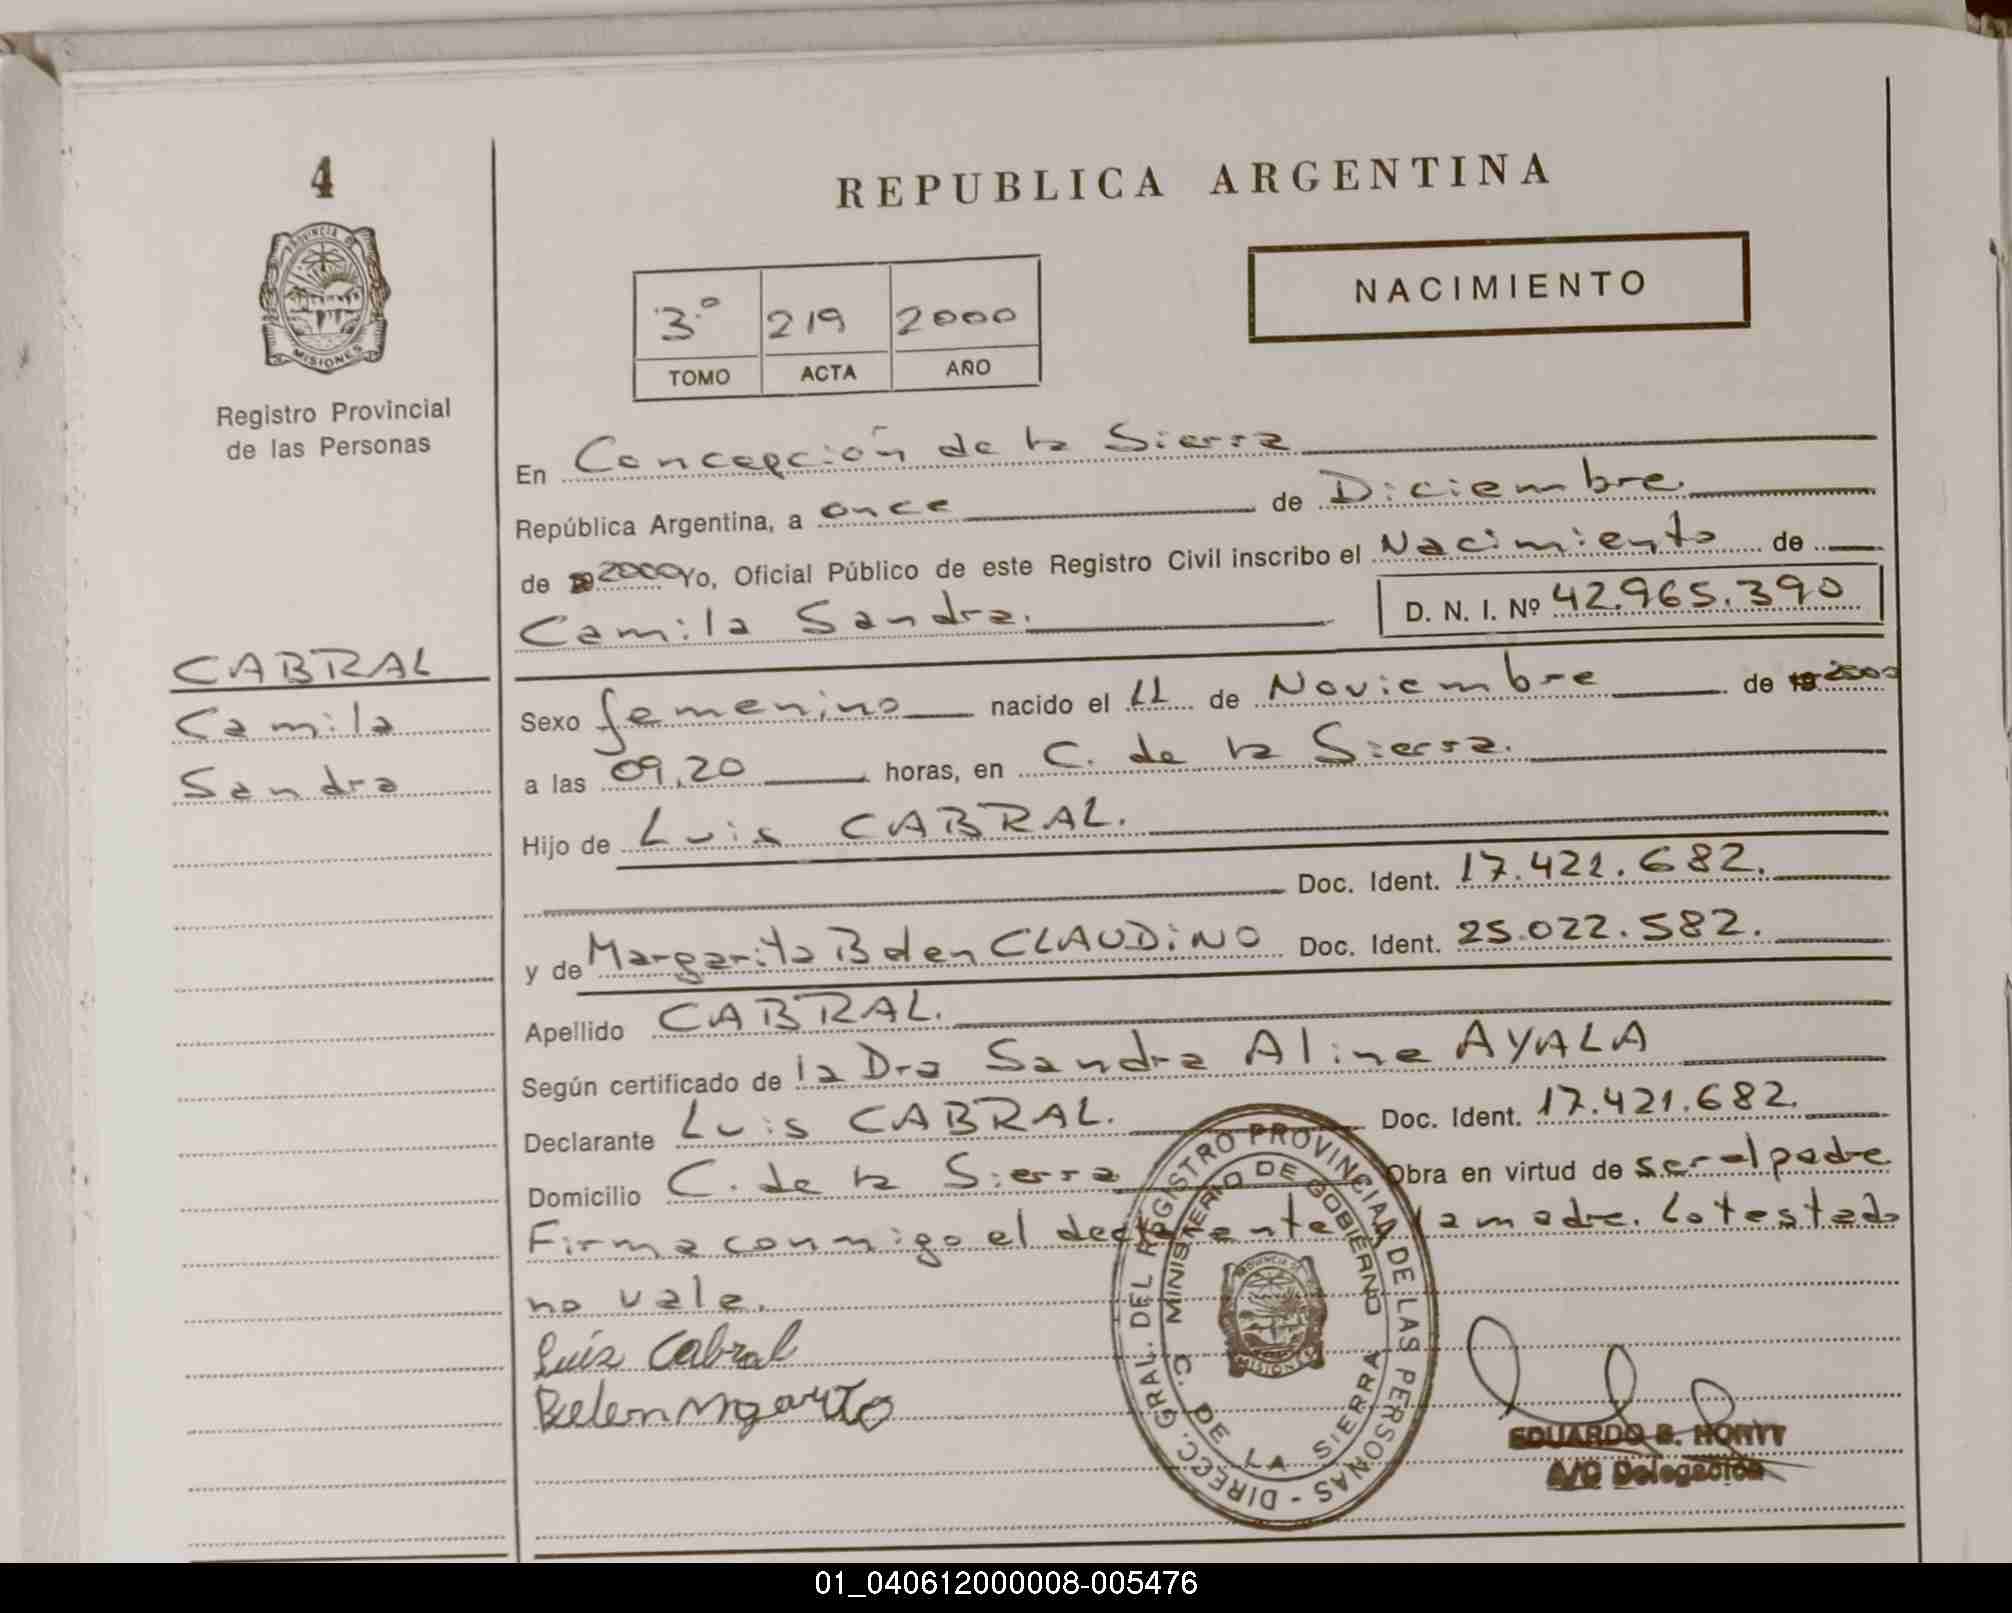 4
PROVINCIA DE
MISIONES
Registro Provincial
de las Personas
REPUBLICA ARGENTINA
NACIMIENTO
3º 219 2000
TOMO ACTA AÑO
En Concepción de la Sierra
República Argentina, a once de Diciembre
de 2000 Yo, Oficial Público de este Registro Civil inscribo el Nacimiento de
Camila Sandra. D. N. I. Nº 42.965.390
CABRAL
Camila
Sandra
Sexo femenino nacido el 11 de Noviembre de 19 2000
a las 09,20 horas, en C. de la Sierra.
Hijo de Luis CABRAL.
Doc. Ident. 17.421.682.
y de Margarita Belen CLAUDiNO Doc. Ident. 25.022.582.
Apellido CABRAL.
Según certificado de la Dra Sandra Aline AYALA
Declarante Luis CABRAL. Doc. Ident. 17.421.682.
Domicilio C. de la Sierra Obra en virtud de ser el padre
Firma conmigo el declarante la madre. Lo testado
no vale.
Luis Cabral
Belen
DIRECC. GRAL. DEL REGISTRO PROVINCIAL DE LAS PERSONAS -
MINISTERIO DE GOBIERNO
C. DE LA SIERRA
PROVINCIA DE
MISIONES
EDUARDO B.
A/C Delegación
01_040612000008-005476